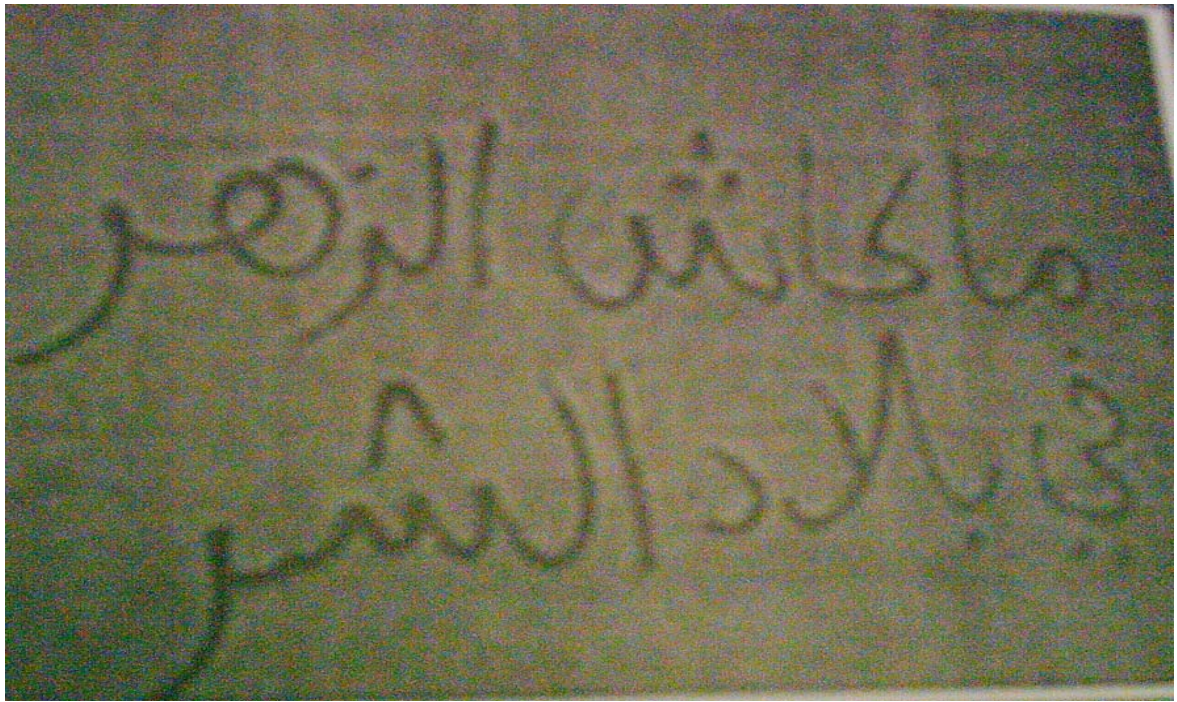 ماكاش الزهر
في بلاد الشر